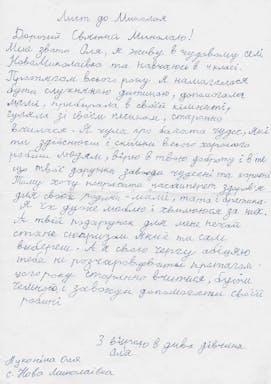 Лист до Миколая
Дорогий Святий Миколаю!
Мене звати Оля, я живу в чудовому селі
НовоМиколаївка та навчаюся в 4 класі.
Протягом всього року я намагалася
бути слухняною дитиною, допомагала
мамі, прибирала в своїй кімнаті,
гуляла зі своїм песиком, старанно
вчилася. Я чула про багато чудес, які
ти здійснюєш і скільки всього хорошого
робиш людям, вірю в твою доброту і в те
що твої дарунки завжди чудесні та гарні.
Тому хочу попросити насамперед здоров'я
для своєї родини - мами, тата і братика.
Я їх дуже люблю і хвилююся за них.
А твій подарунок для мене нехай
стане сюрпризом який ти сам
вибереш. А я свою чергу обіцяю
тебе не розчаровувати протягом
усього року старанно вчитися, бути
чемною і завжди допомагати своїй
родині
З вірою в дива дівчинка
Оля
Оля
с. Ново Миколаївка